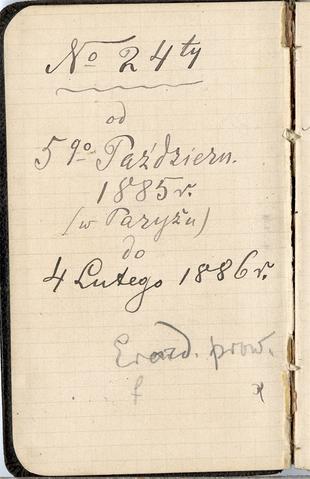 No 24ty
od
5go Październ.
1885 r.
(w Paryżu)
do
4 Lutego 1886 r.
prow.